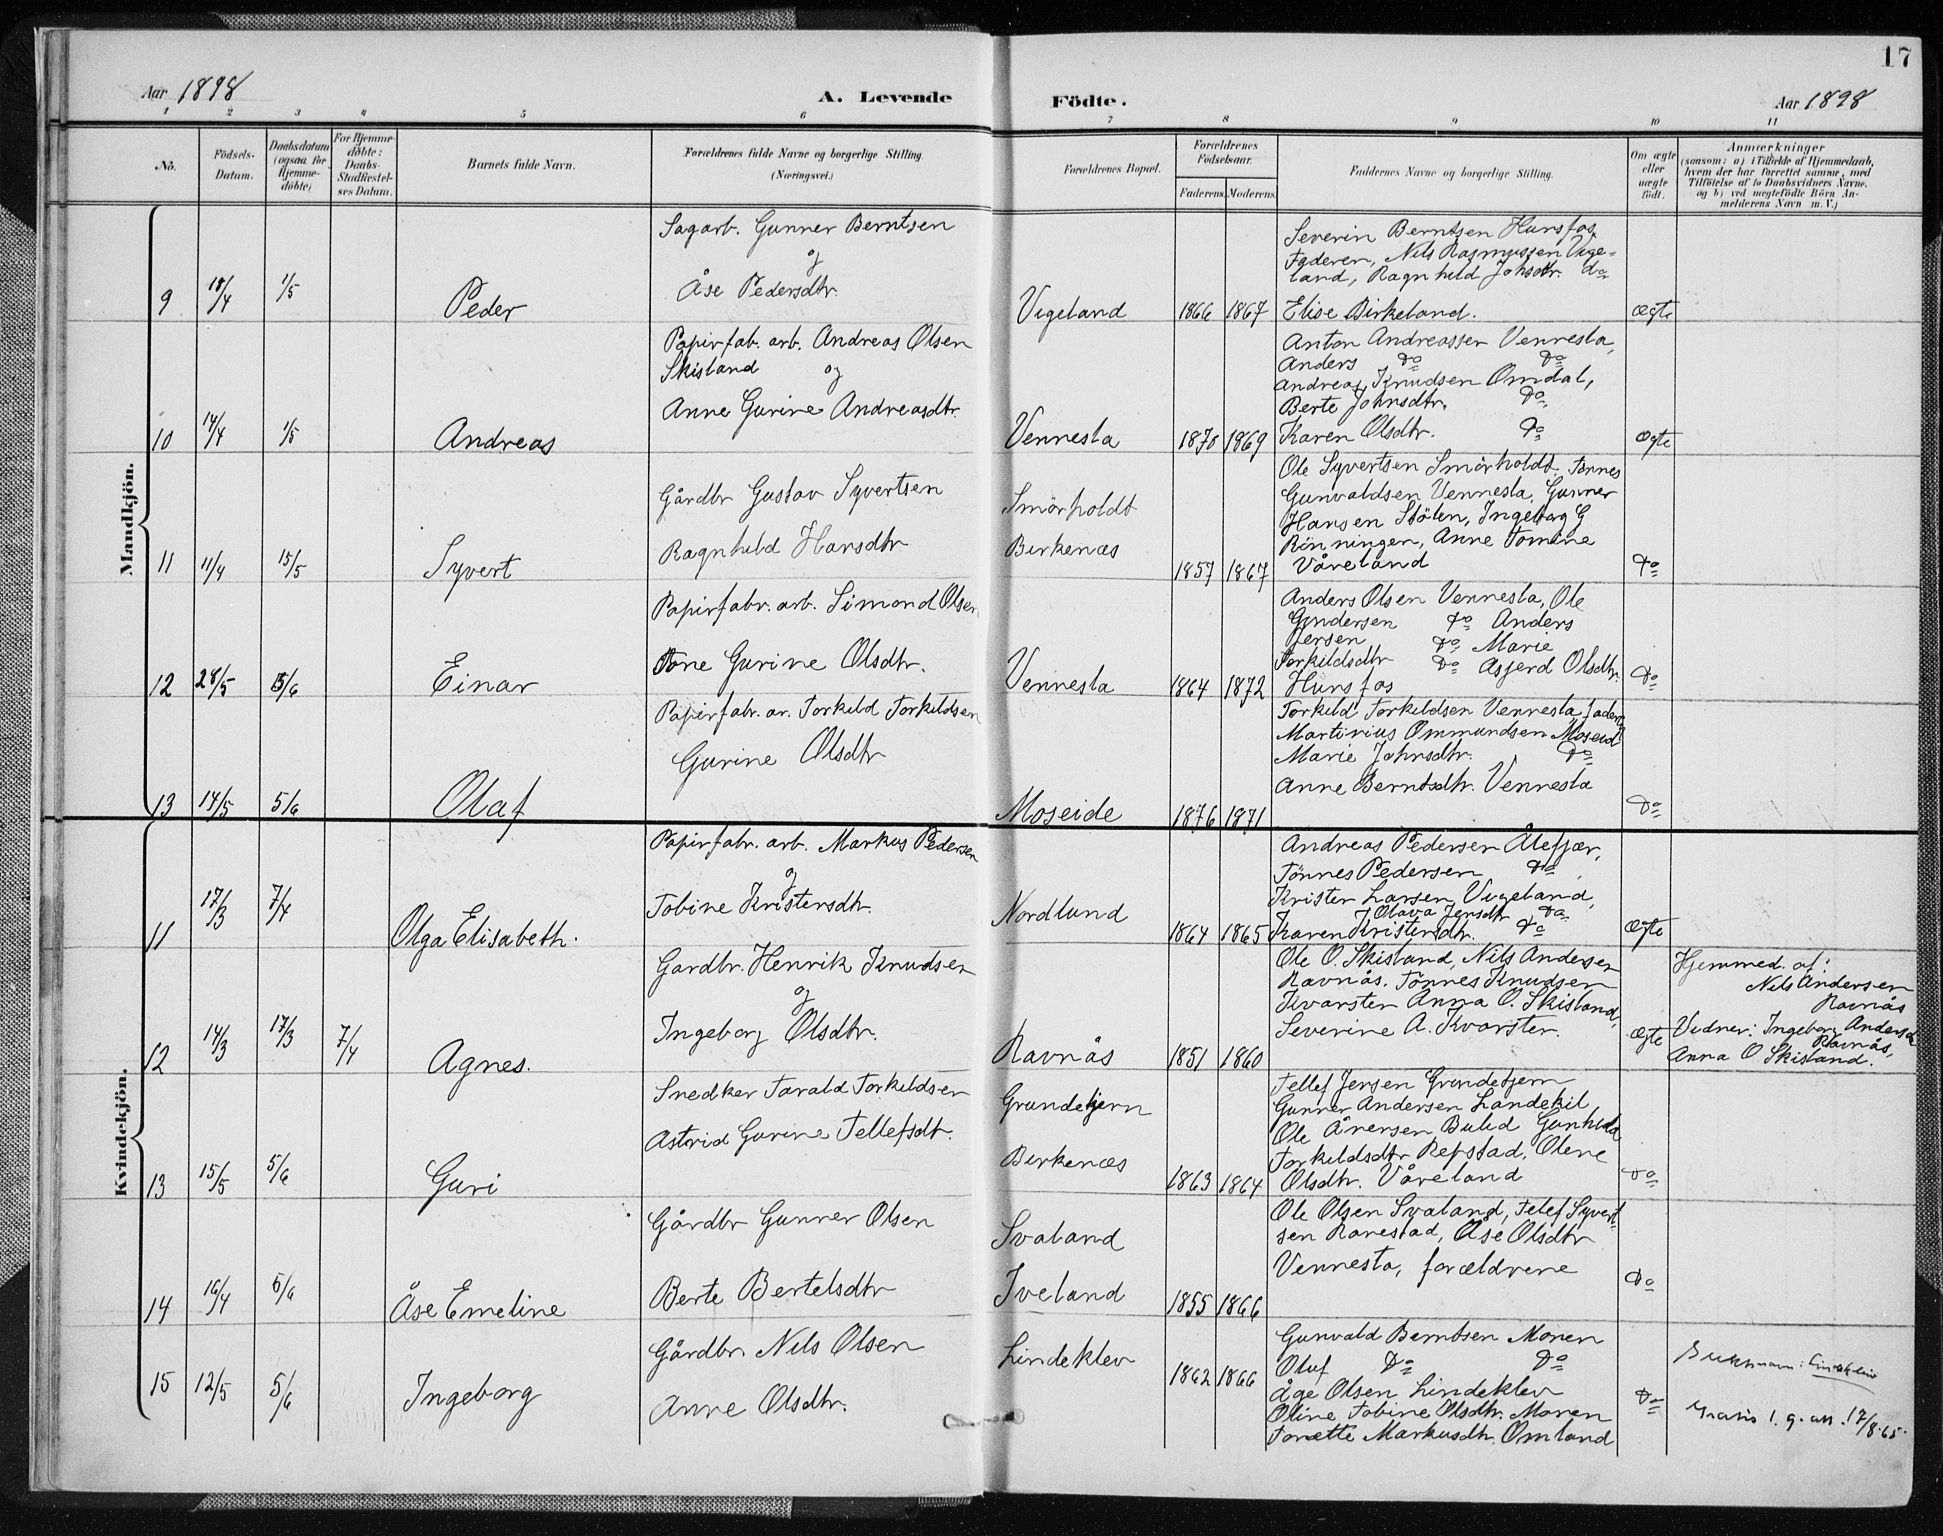 17
Aar 1898
A. Levende Födte.
Aar 1898
1 2 3 4 5 6 7 8 9 10 11
No.
Födsels-
Datum.
Daabsdatum
(ogsaa for
Hjemme-
döbte)
For Hjemme-
döbte:
Daabs-
Stadfæstel-
ses Datum.
Barnets fulde Navn.
Forældrenes fulde Navne og borgerlige Stilling.
(Næringsvei.)
Forældrenes Bopæl.
Forældrenes
Födselsaar.
Faderens. Moderens.
Faddernes Navne og borgerlige Stilling.
Om ægte
eller
uægte
födt.
Anmærkninger
(saasom: a) i Tilfælde af Hjemmedaab,
hvem der har forrettet samme, med
Tilföielse af to Daabsvidners Navne.
og b) ved uægtefödte Börn An-
melderens Navn m. V.)
Mandkjön.
9 18/4 1/5 Peder
Sagarb. Gunner Berntsen
og
Åse Pedersdtr.
Vigeland 1866 1867
Severin Berntsen Hunsfos
Faderen, Nils Rasmussen Vige-
land, Ragnhild Johsdtr. do
Elise Birkeland.
ægte
10 14/4 1/5 Andreas
Papirfab. arb. Andreas Olsen
Skisland og
Anne Gurine Andreasdtr.
Vennesla 1870 1869
Anton Andreassen Vennesla,
Anders Do Do
Andreas Knudsen Omdal,
Berte Johnsdtr. Do
Karen Olsdtr. Do
ægte
11 11/4 15/5 Syvert
Gårdbr Gustav Syvertsen
Ragnhild Hansdtr
Smörholdt
Birkenæs
1857 1867
Ole Syvertsen Smörholdt, Tönnes
Gunvaldsen Vennesla, Gunner
Hansen Stölen, Ingeborg G
Rönningen, Anne Tomine
Våreland
Do
12 28/5 5/6 Einar
Papirfabr. arb. Simond Olsen
Tone Gurine Olsdtr.
Vennesla 1864 1872
Anders Olsen Vennesla, Ole
Gundersen Do Anders
Jersen Do Marie
Torkildsdtr Do Asjerd Olsdtr.
Hunsfos
Do
13 14/5 5/6 Olaf
Papirfabr. ar. Torkild Torkildsen
Gurine Olsdtr
Moseide 1876 1871
Torkild Torkildsen Vennesla, faderen
Martinius Ommundsen Moseid
Marie Johnsdtr. Do
Anne Berntsdtr. Vennesla
Do
Kvindekjön.
11 17/3 7/4 Olga Elisabeth.
Papirfabr. arb. Markus Pedersen
og
Tobine Kristersdtr.
Nordlund 1864 1865
Andreas Pedersen Ålefjær,
Tönnes Pedersen Do
Krister Larsen Vigeland,
Olava Jensdtr Do
Karen Kristersdtr. Do
Ægte
12 14/3 17/3 7/4 Agnes.
Gardbr. Henrik Knudsen
og
Ingeborg Olsdtr.
Ravnås 1851 1860
Ole O. Skisland, Nils Andersen
Ravnås. Tönnes Knudsen
Kvarsten Anna O. Skisland,
Severine A. Kvarsten.
Ægte
Hjemmed. af:
Nils Andersen
Ravnås
Vidner: Ingeborg Andersdtr
Ravnås,
Anna O Skisland.
13 15/5 5/6 Guri
Snedker Tarald Torkildsen
Astrid Gurine Tellefsdtr.
Grundetjern
Birkenæs
1863 1864
Tellef Jensen Grundetjern
Gunner Andersen Landekil
Ole Ånersen Bulid Gunhilda
Torkildsdtr Refstad, Olene
Olsdtr. Våreland
Do
14 16/4 5/6 Åse Emeline
Gårdbr Gunner Olsen
Berte Bertelsdtr
Svaland
Iveland
1855 1866
Ole Olsen Svaland, Telef Syvert-
sen Ranestad, Åse Olsdtr
Vennesla, forældrene
Do
15 12/5 5/6 Ingeborg
Gårdbr. Nils Olsen
Anne Olsdtr.
Lindeklev 1862 1866
Gunvald Berntsen Monen
Oluf Do Do
Åge Olsen Lindeklev
Oline Tobine Olsdtr. Monen
Tonette Markusdtr. Omland
Do
17/8.65.